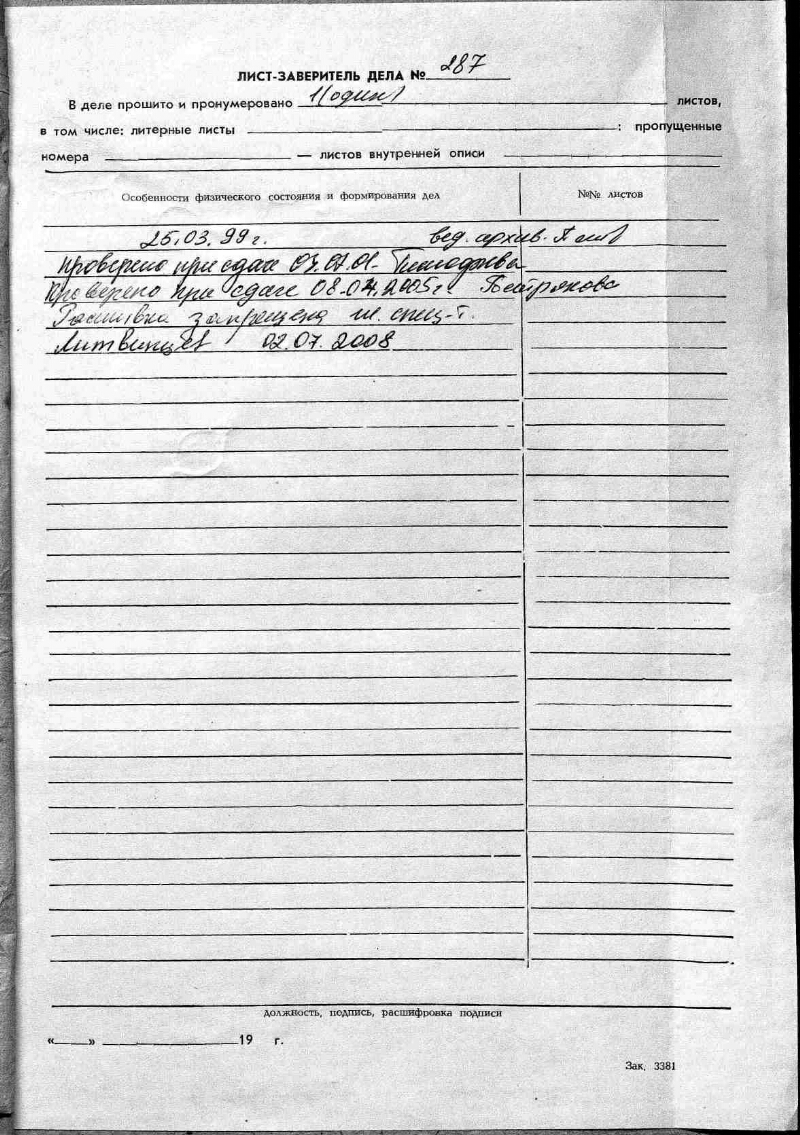 ЛИСТ-ЗАВЕРИТЕЛЬ ДЕЛА № 287
В деле прошито и пронумеровано 1(один) листов,
в том числе: литерные листы : пропущенные
номера — листов внутренней описи
Особенности физического состояния и формирования дел №№ листов
25.03.99 г. вед. архив.
Проверено при сдаче 01 Тимофеева
Проверено при сдаче 2005 г Петрякова
Расшивка запрещена
Литвинцев 02.07.2008
должность, подпись, расшифровка подписи
«___» 19 г.
Зак. 3381